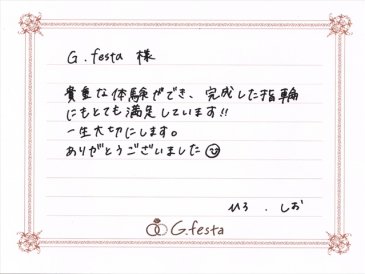 G.festa 様
貴重な体験ができ、完成した指輪
にもとても満足しています!!
一生大切にします。
ありがとうございました☺
ひろ . しお
G.festa